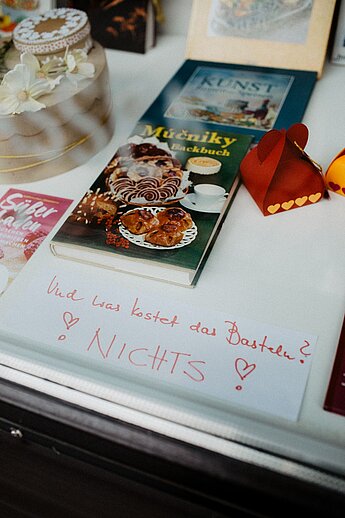 KUNST
Mučniky
Backbuch
Süßer
Und was kostet das Basteln?
NICHTS